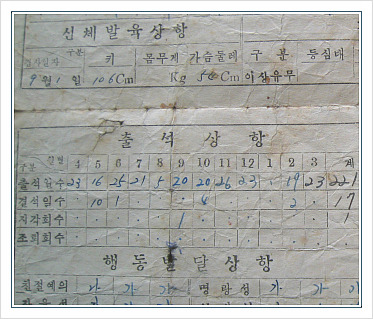 신체발육상항
구분 키 몸무게 가슴둘레 구분 등심태
검사일자
9월 1일 106Cm Kg 54Cm 이상유무
출석상항
구분 월별 4 5 6 7 8 9 10 11 12 1 2 3 계
출석일수 23 16 25 21 5 20 20 26 23 · 19 23 221
결석일수 10 1 8 2 17
지각회수 1 1
조퇴회수
행동발달상항
친절예의 가 가 가 명랑성 가 가 가